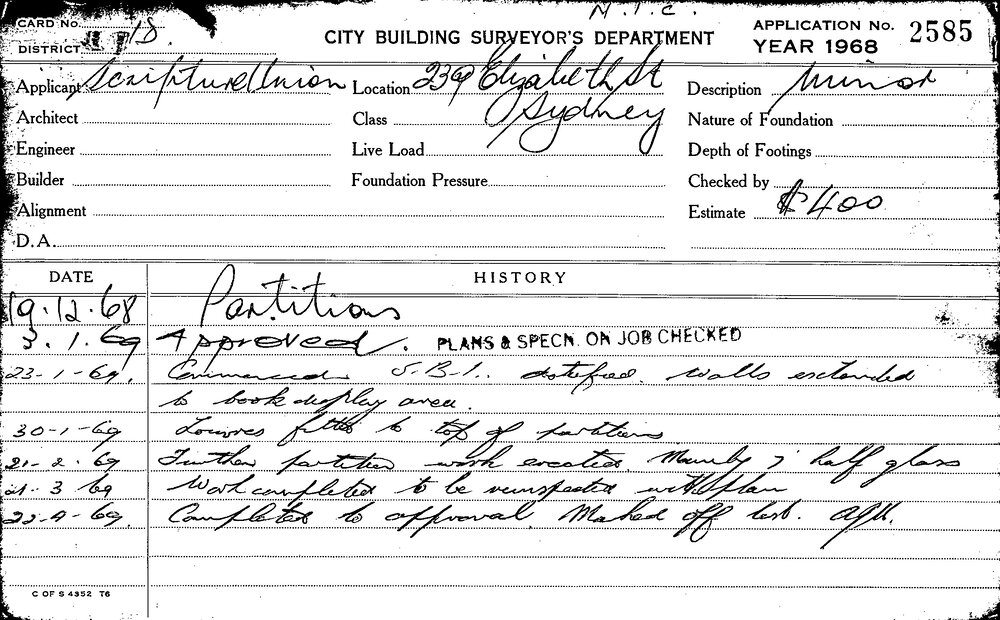 M.I.C.
CARD No.
DISTRICT 18.
CITY BUILDING SURVEYOR'S DEPARTMENT
APPLICATION No. 2585
YEAR 1968
Applicant Scripture Union Location 239 Elizabeth St Description Minor
Architect Class Sydney Nature of Foundation
Engineer Live Load Depth of Footings
Builder Foundation Pressure Checked by
Alignment Estimate $400
D.A.
DATE HISTORY
19.12.68 Partitions
3.1.69 Approved. PLANS & SPECN. ON JOB CHECKED
23-1-69. Commenced S.B.I. notified. Walls extended
to book display area.
30-1-69 Louvres fitted to top of partitions
21-2-69 Further partition work erected. Mainly half glass
21-3 69 Work completed to be reinspected with plan
22-4-69. Completed to approval Marked off list.
C OF S 4352 T6